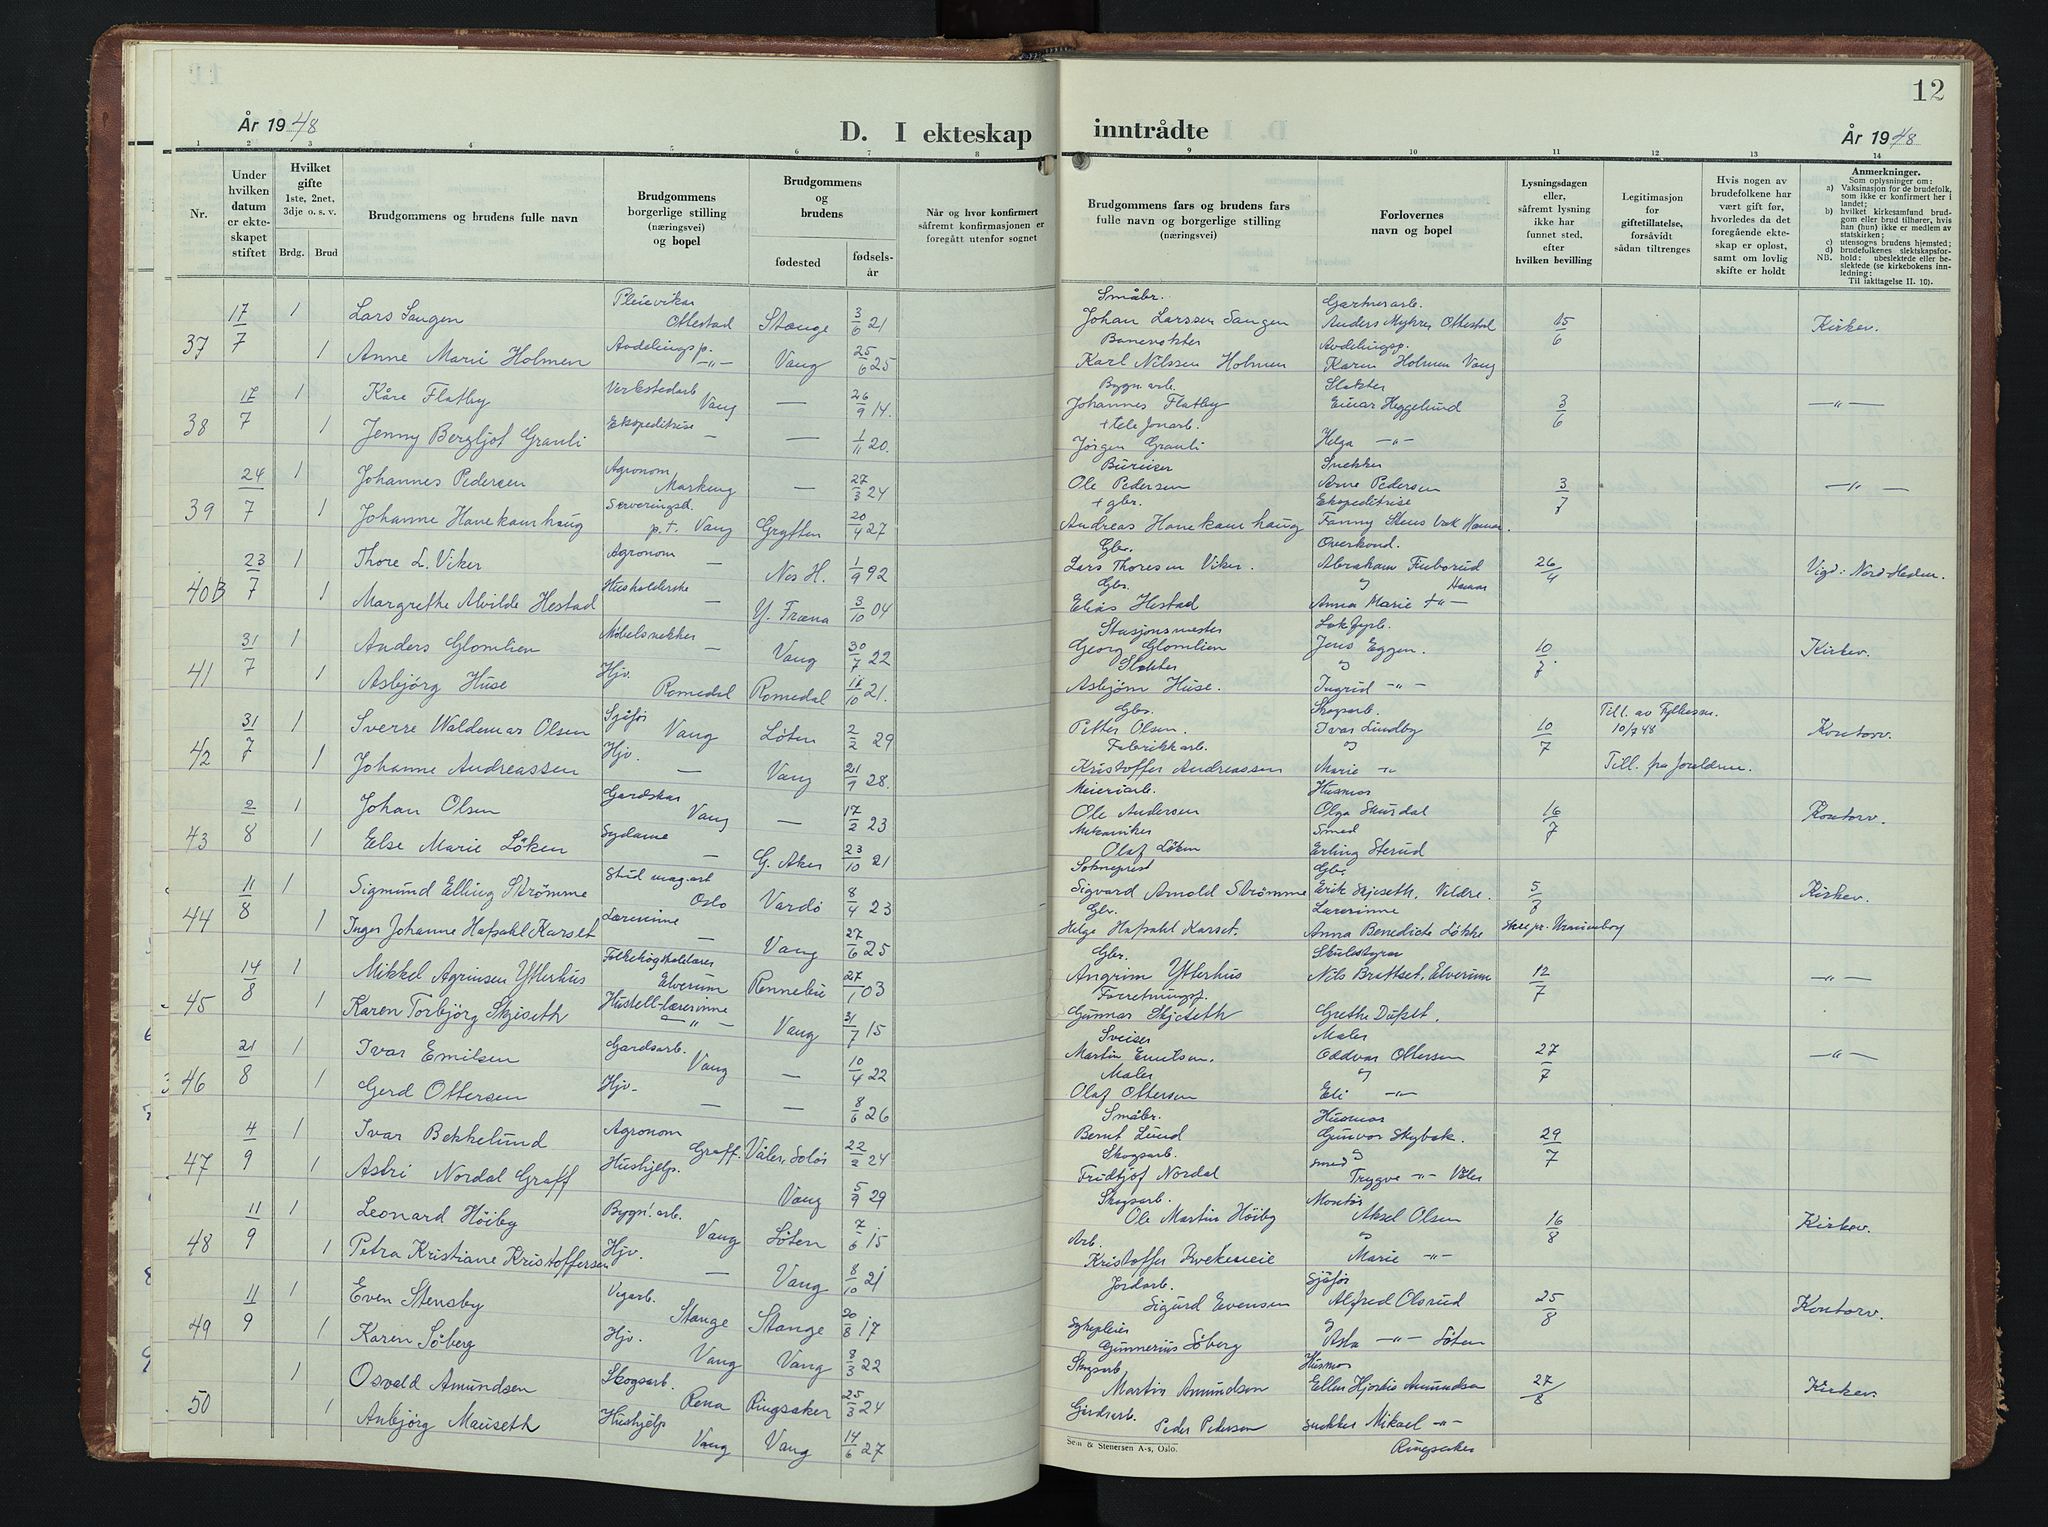 12
År 1948
D. I ekteskap
inntrådte
År 1948
1 2 3 4 5 6 7 8 9 10 11 12 13 14
Nr.
Under hvilken datum er ekte-skapet stiftet
Hvilket gifte 1ste, 2net, 3dje o. s. v.
Brdg. Brud
Brudgommens og brudens fulle navn
Brudgommens borgerlige stilling (næringsvei) og bopel
Brudgommens og brudens
fødested
fødsels-år
Når og hvor konfirmert såfremt konfirmasjonen er foregått utenfor sognet
Brudgommens fars og brudens fars fulle navn og borgerlige stilling (næringsvei)
Forlovernes navn og bopel
Lysningsdagen eller, såfremt lysning ikke har funnet sted, efter hvilken bevilling
Legitimasjon for giftetillatelse, forsåvidt sådan tiltrenges
Hvis nogen av brudefolkene har vært gift før, hvorledes da det foregående ekte-skap er opløst, samt om lovlig skifte er holdt
Anmerkninger.
Som oplysning om:
a) Vaksinasjon for de brudefolk, som ikke er konfirmert her i landet;
b) hvilket kirkesamfund brud-gom eller brud tilhører, hvis han (hun) ikke er medlem av statskirken;
c) utensogns brudens hjemsted;
d) brudefolkenes slektskapsfor-hold: ubeslektede eller be-slektede (se kirkebokens inn-ledning;
NB. Til iakttagelse II. 10).
37 17/7 1 Lars Saugen Pleievikar Ottestad Stange 3/6 21 Småbr. Johan Larssen Saugen Gartnerarb. Anders Myhrer Ottestad 15/6 Kirkev.
1 Anne Marie Holmen Avdelingsp. -"- Vang 25/6 25 Banevokter Karl Nilssen Holmen Avdelingsp. Karin Holmen Vang
38 17/7 1 Kåre Flatby Verkstedarb Vang — 26/9 14. Bygn. arb. Johannes Flatby Slakter Einar Heggelund 3/6 -"-
1 Jenny Bergljot Grauli Ekspeditrise — — 1/11 20. + tele fonarb. Jørgen Grauli Helga -"-
39 24/7 1 Johannes Pedersen Agronom — 27/3 24 Bureiser Ole Pedersen Snekker Arne Pedersen 3/7 -"-
1 Johanne Hanekamhaug Serveringsd. p.t. Vang Grytten 20/4 27 + gbr. Andreas Hanekamhaug Ekspeditrise Fanny Hamar.
40B 23/7 1 Thore L. Viker Agronom — Nes H. 1/9 92 Gbr. Lars Thoresen Viker. Overkond. Abraham Furborud Hamar 26/4 Vigd: Nord-Hedm.
1 Margrethe Alvilde Hestad Husholderske — Y. Fræna 3/10 04 Gbr. Elias Hestad Anna Marie -"-
41 31/7 1 Anders Glomlien Møbelsnekker — Vang 30/7 22 Stasjonsmester Georg Glomlien Lok.fyrb. Jens Eggen. 10/7. Kirkev.
1 Asbjørg Huse Hjv. Romedal Romedal 11/10 21. Slakter Asbjørn Huse. Ingrid -"-
42 31/7 1 Sverre Waldemar Olsen Sjåfør Vang Løten 2/2 29 Gbr. Petter Olsen. Skogsarb. Ivar Lundby 10/7 Till. av Fylkesm. 10/7 48 Kontorv.
1 Johanne Andreassen Hjv. — Vang 21/9 28. Fabrikkarb. Kristoffer Andreassen Marie -"- Till. fra foreldrene.
43 2/8 1 Johan Olsen Gardskar Vang — 17/2 23 Meieriarb. Ole Andersen Husmor Olga Skurdal 16/7 Kontorv.
1 Else Marie Løken Sydame — G. Aker 23/10 21 Mekaniker Olaf Løken Smed Erling Sterud
44 11/8 1 Sigmund Elling Strømme Stud mag. art Oslo Vardø 8/4 23 Sokneprest Sigvard Arnold Strømme Gbr. Erik Skjeseth, Veldre. 5/8 Kirkev.
1 Inger Johanne Hafsahl Karset Lærerinne — Vang 27/6 25 Gbr. Helge Hafsahl Karset. Lærerinne Anna Benedicte Løkke
45 14/8 1 Mikkel Agrimsen Ytterhus Folkehøgskolelærer Elverum Rennebu 27/1 03 Gbr. Angrim Ytterhus Skulestyrar Nils Brattset, Elverum 12/7 -"-
1 Karen Torbjørg Skjeseth Hustell-lærerinne -"- Vang 31/7 15 Forretningsf. Gunnar Skjeseth Grethe Dufset.
46 21/8 1 Ivar Emilsen Gardsarb. Vang — 10/4 22 Sveiser Martin Emilsen. Maler Oddvar Ottersen 27/7 -"-
1 Gerd Ottersen Hjv. — — 8/6 26 Maler Olaf Ottersen Eli -"-
47 4/9 1 Ivar Bekkelund Agronom Graff. Våler, Solør 22/2 24 Småbr. Bernt Lund Husmor Gunvor Skybak. 29/7
1 Astri Nordal Graff Hushjelp. Vang 5/9 29 Skogsarb. Fridtjof Nordal smed Trygve -"- Våler
48 11/9 1 Leonard Høiby Bygn. arb. Vang Løten 7/6 15 Skogsarb. Ole Martin Høiby Montør Aksel Olsen 16/8 Kirkev.
1 Petra Kristiane Kristoffersen Hjv. — Vang 8/10 21 Arb. Kristoffer Kvekeneie Marie -"-
49 11/9 1 Even Stensby Vegarb. Stange Stange 20/8 17 Jordarb. Sigurd Evensen Sjåfør Alfred Olsrud 25/8 Kontorv.
1 Karen Søberg Hjv. Vang Vang 8/3 22 Sykepleier Gunnerius Søberg Asta -"- Løten
50 1 Osvald Amundsen Skogsarb. Rena Ringsaker 25/3 24 Skogsarb Martin Amundsen Husmor Ellen Hjørdis Amundsen 27/8 Kirkev.
1 Anbjørg Mauseth Hushjelp Vang Vang 14/6 27 Gardsarb. Peder Pederson snekker Mikael -"- Ringsaker
Sem & Stenersen A-s, Oslo.